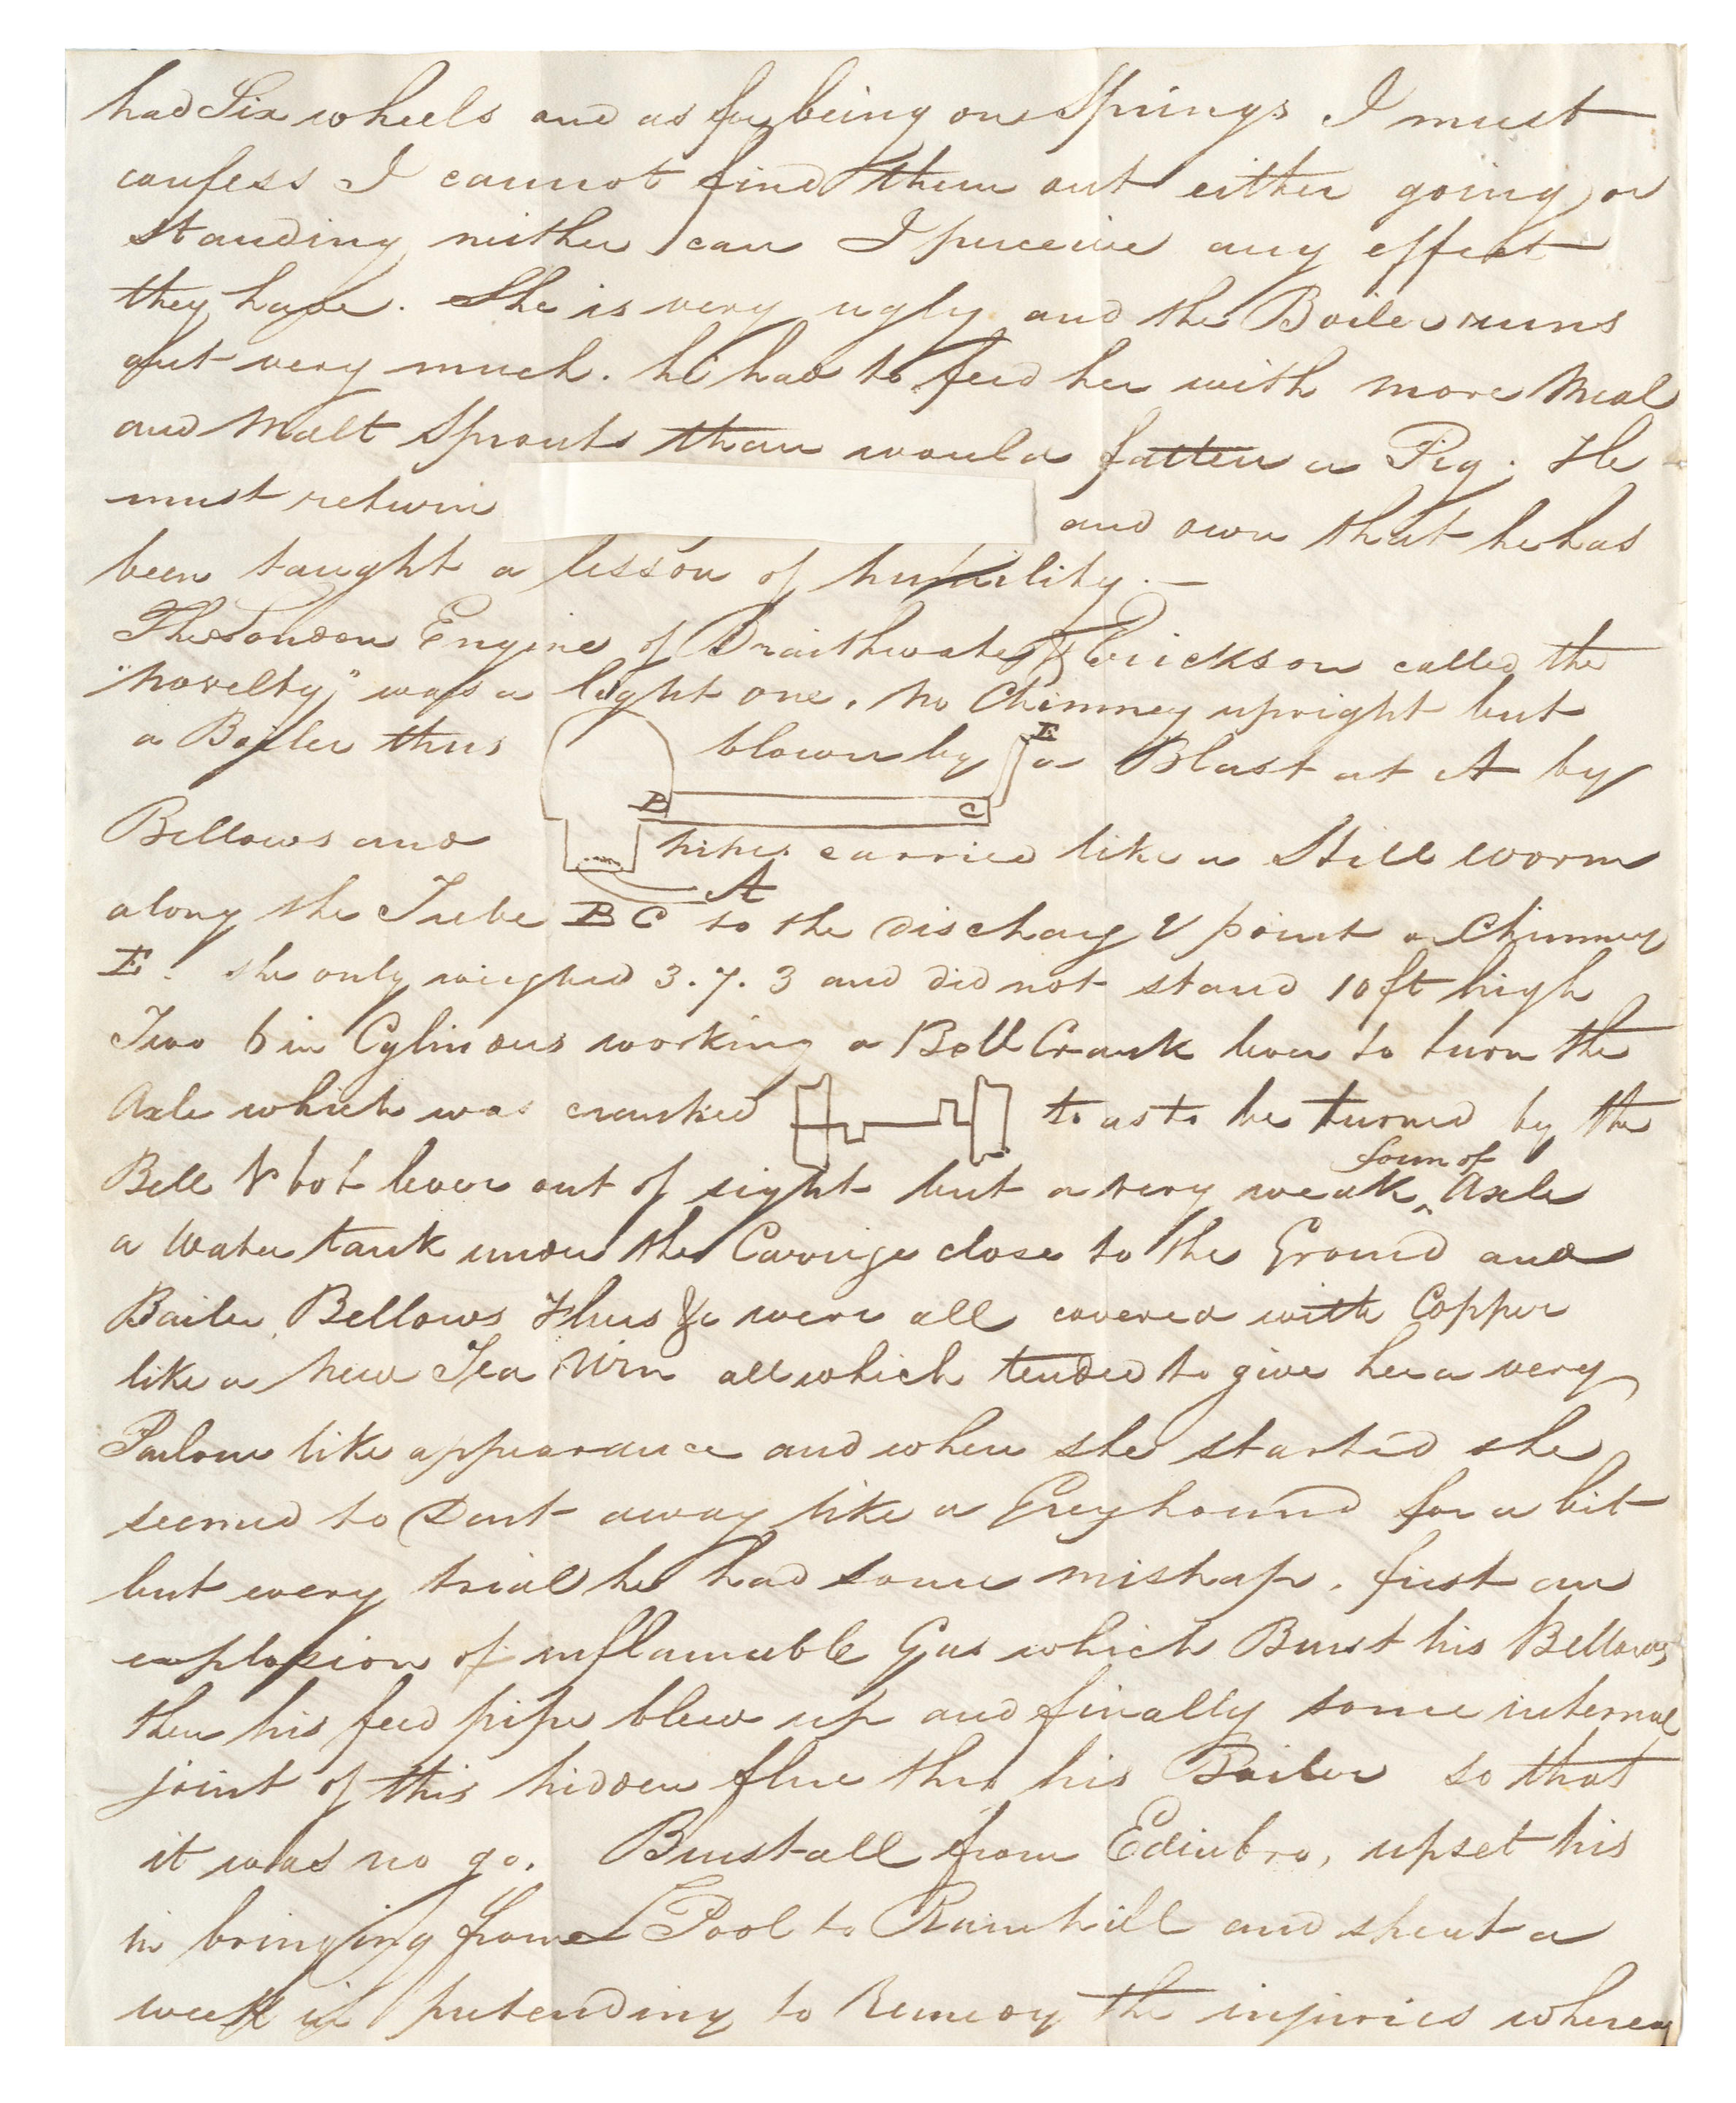 had Six wheels and as for being on Springs I must
confess I cannot find them out either going or
standing neither can I perceive any effect
they have. She is very ugly and the Boiler runs
out very much. he had to feed her with more Meal
and Malt Sprouts than would fatten a Pig. He
must return and own that he has
been taught a lesson of humility. —
The London Engine of Braithwate & Erickson called the
"Novelty" was a light one, no Chimney upright but
a Boiler thus blown by a Blast at A by
E
B C
Bellows and pipes carried like a Still worm
A
along the Tube B C to the discharg point or Chimney
E. she only weighed 3.7.3 and did not stand 10 ft high
Two 6 in Cylinders working a Bell Crank lever to turn the
Axle which was cranked to as to be turned by the
form of
Bell bot lever out of sight but a very weak ^ Axle
a Water tank under the Carrige close to the Ground and
Boiler Bellows Flues &c were all covered with Copper
like a new Tea Urn all which tended to give her a very
Parlour like appearance and when she started she
seemed to Dart away like a Greyhound for a bit
but every trial he had some mishap, first an
explosion of inflamable Gas which Burst his Bellows
then his feed pipe blew up and finally some internal
joint of this hidden flue thro his Boiler so that
it was no go. Burstall from Edinbro, upset his
in bringing from LPool to Rainhill and spent a
week in pretending to Remedy the injuries whereas